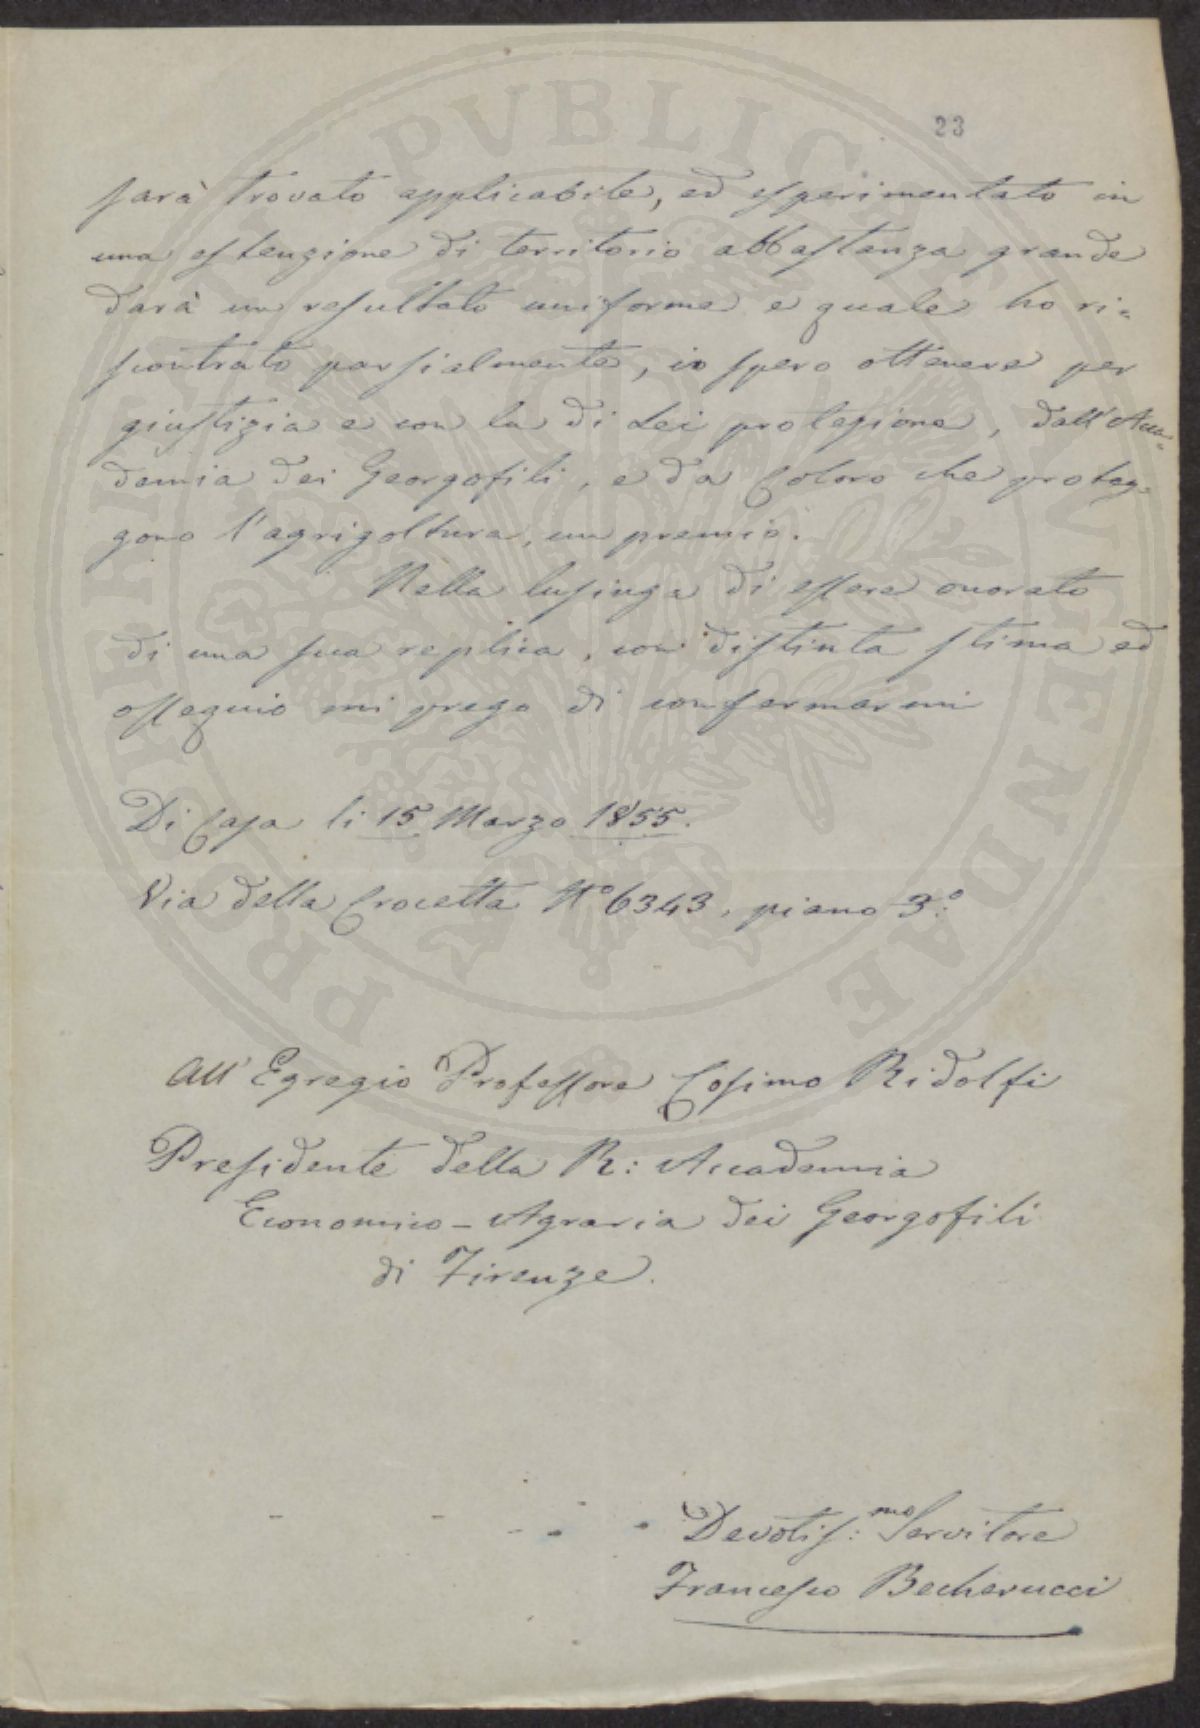 23
sarà trovato applicabile, ed esperimentato in
una estenzione di territorio abbastanza grande
darà un resultato uniforme e quale ho ri=
scontrato parsialmente, io spero ottenere per
giustizia e con la di Lei protesione, dall'Acca=
demia dei Georgofili, e da Coloro che proteg=
gono l'agrigoltura, un premio.
Nella lusinga di essere onorato
di una sua replica, con distinta stima ed
ossequio mi prego di confermarmi
Di Casa li 15 Marzo 1855.
Via della Crocetta N.º 6343, piano 3.º
All' Egregio Professore Cosimo Ridolfi
Presidente della R: Accademia
Economico-Agraria dei Georgofili
di Firenze.
Devotis:mo Servitore
Francesco Becherucci
PROSPERITATI PVBLICAE AVGENDAE